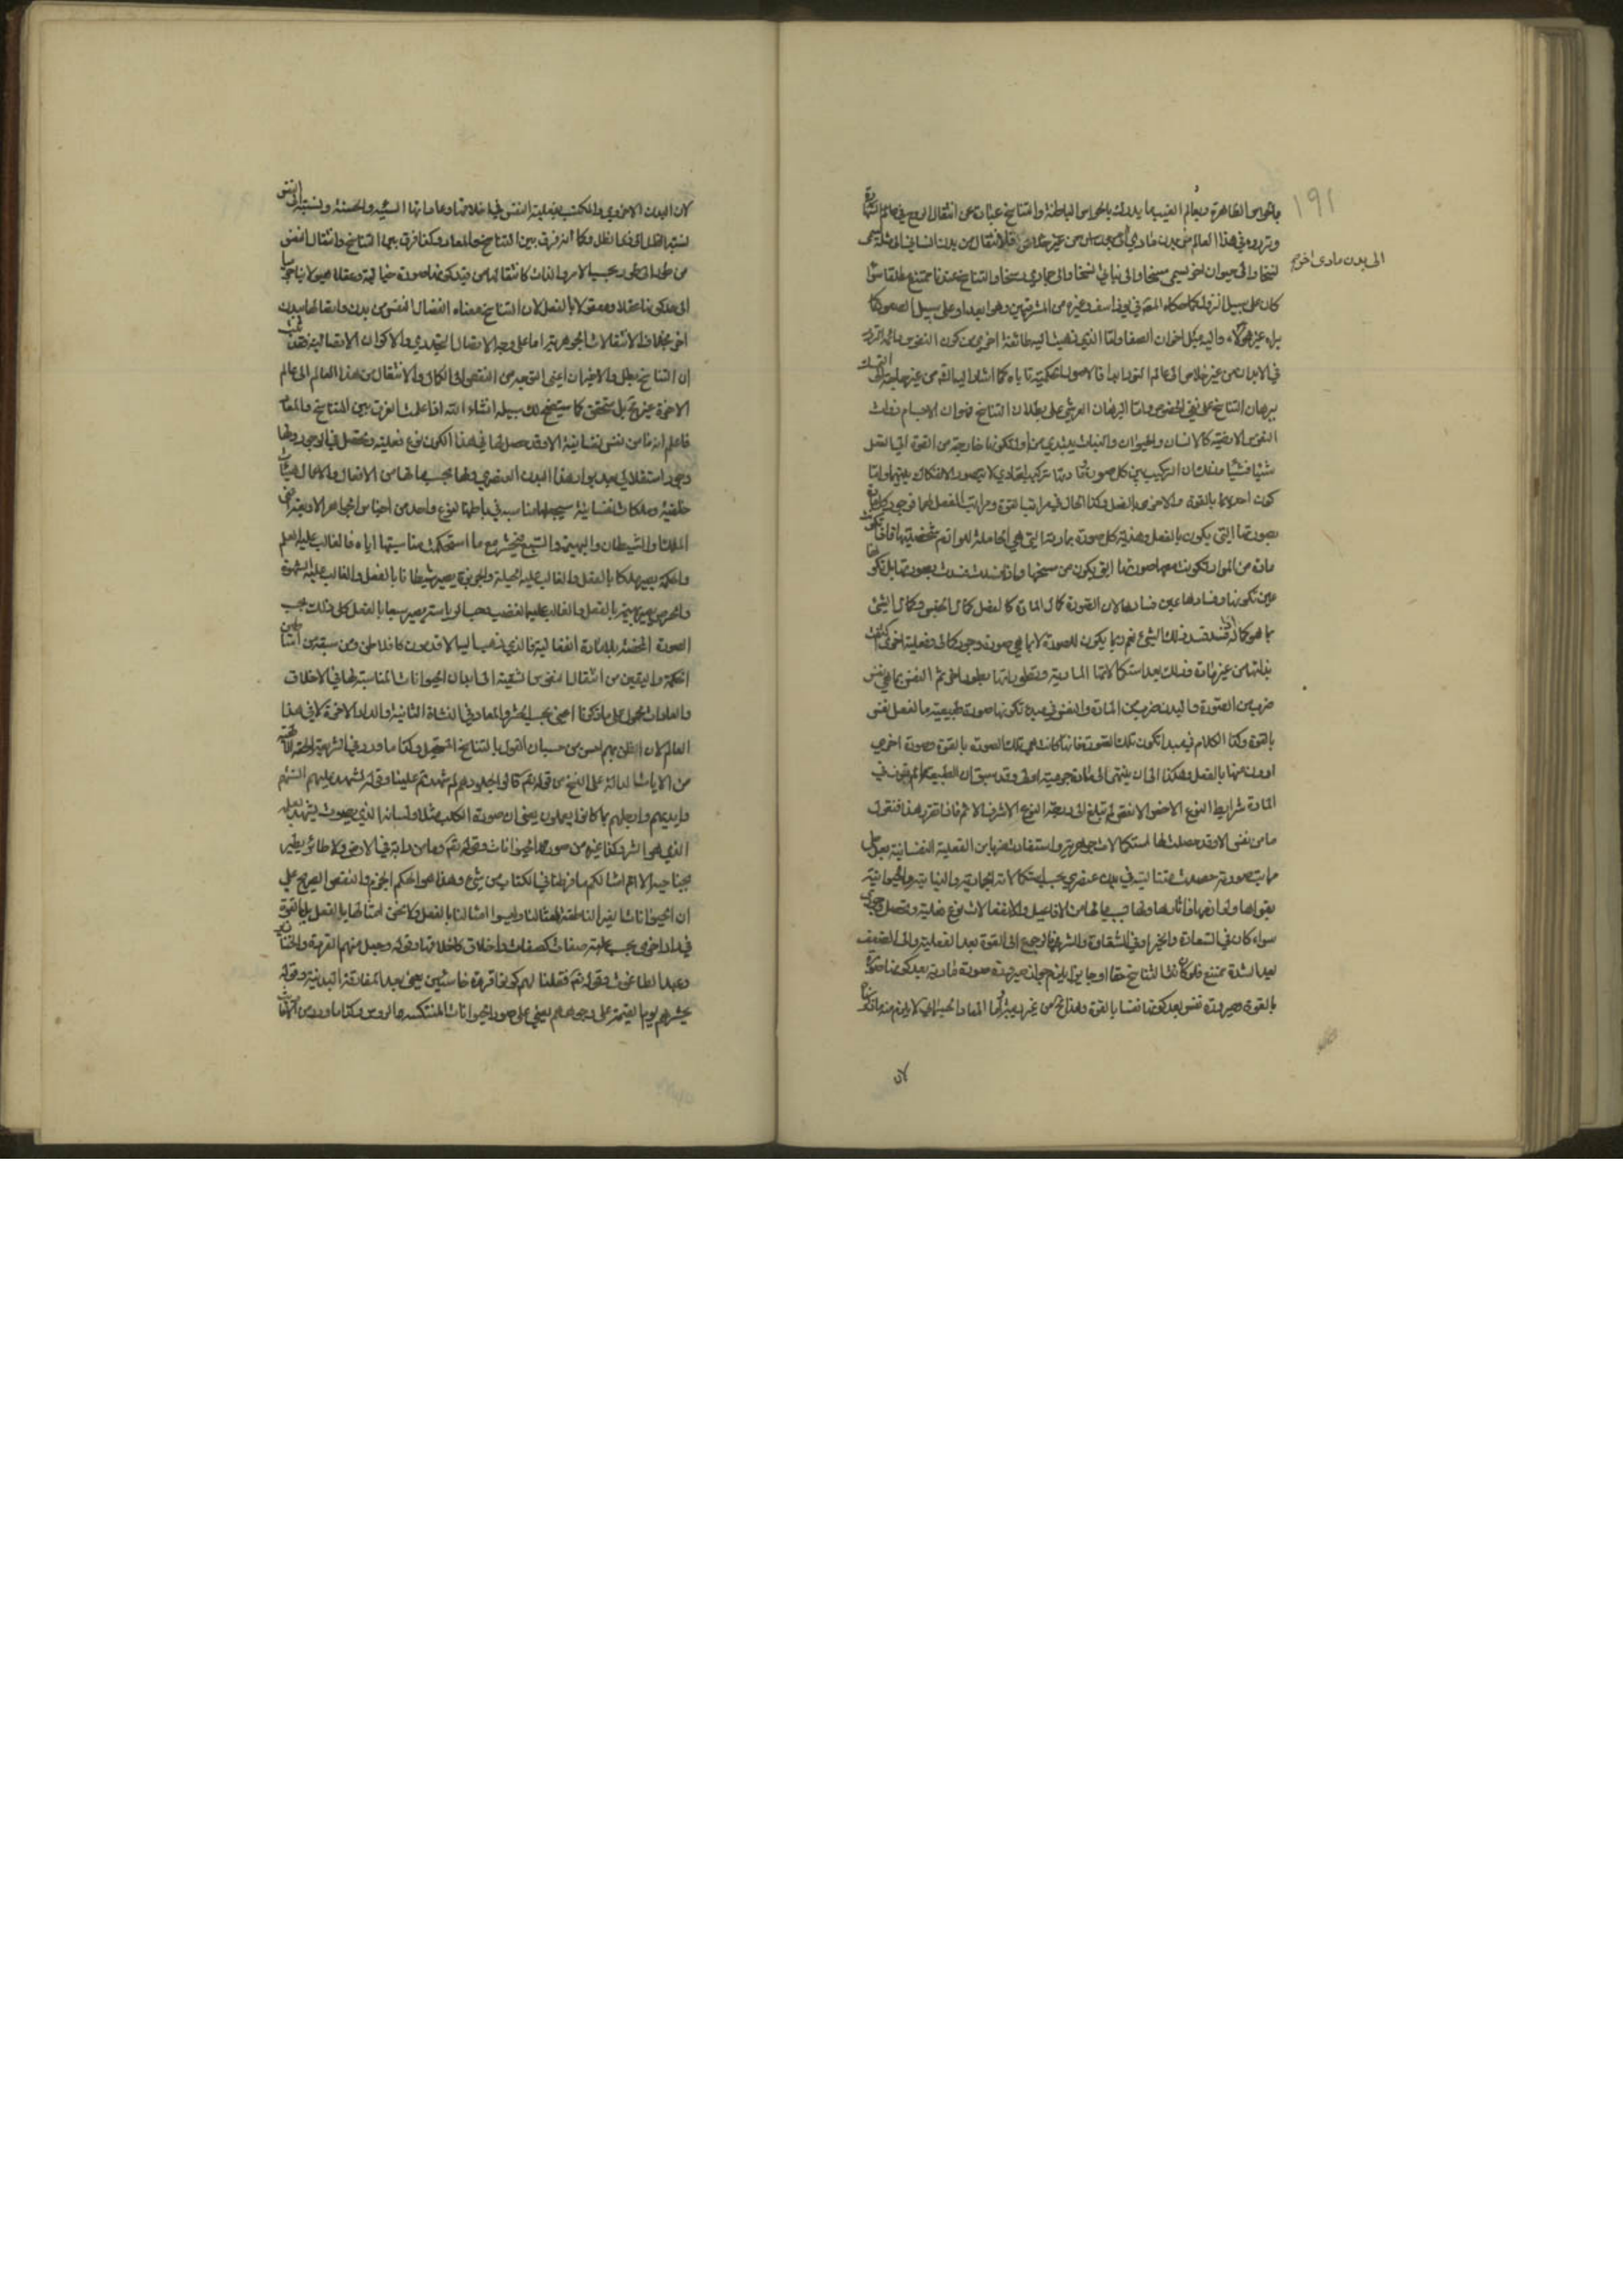 ١٩١
بالحواس الظاهرة وبعالم الغيب ما يدرك بالحواس الباطنة والتناسخ عبارة عن انتقال الروح في عالم الشهادة
وتردده في هذا العالم من بدن مادي
الى بدن مادى اخر
نسخا والى حيوان اخر يسمى مسخا والى نباتي فسخا والى جمادي رسخا والتناسخ عندنا ممتنع مطلقا سواء
كان على سبيل النزول كما حكاه المعة في يوذاسف وغيره من المشرقيين وهو ابعد او على سبيل الصعود كما
يراه غير هؤلاء واليه يميل اخوان الصفا واما الذي ذهبت اليه طائفة اخرى من كون النفوس دائمة التردد
في الابدان من غير خلاص الى عالم النور ابدا فالاصول الحكمية تأباه كما اشار اليه المة من غير حاجة الى التمسك
ببرهان التناسخ على نفي الخصوص واما البرهان العرشي على بطلان التناسخ فهو ان الاجسام ذوات
النفوس الارضية كالانسان والحيوان والنبات يبتدي من اول تكونها خارجة من القوة الى الفعل
شيئا فشيئا وقلنا ان التركيب بين كل صورة ومادتها تركيب اتحادي لا يتصور الانفكاك بينهما واما
كون احدهما بالقوة والاخرى بالفعل وكذا الحال في مراتب القوة ومراتب الفعل لهما فوجود كل مادة
بصورتها التي يكون بالفعل وهذية كل صورة بمادتها التي هي الحاملة للوازم شخصيتها فاذا تكونت
مادة من المواد تكونت معها صورتها التي يكون من سنخها واذا فسدت فسدت بصورتها بل تكونها
عين تكونها وفسادها عين فسادها لان الصورة كمال المادة كالفصل كمال الجنس وكمال الشيء
بما هو كماله اذا فسد فسد ذلك الشيء نعم ربما يكون للصورة لا بما هي صورة وجود كمالي وفعلية اخرى
بذاتها من غير مادة وذلك بعد استكمالاتها المادية وتطوراتها بطور اخر ثم النفس بما هي نفس
ضرب من الصورة والبدن ضرب من المادة والنفس في مبدء تكونها صورة طبيعية بالفعل نفس
بالقوة وكذا الكلام في مبدا تكون تلك الصورة فانها كانت قبل تلك الصورة بالقوة وصورة اخرى
ادون منها بالفعل وهكذا الى ان ينتهي الى مادة جرمية اولى وقد سبق ان الطبيعة ما لم توف في
المادة شرايط النوع الاخس الانقص لم تبلغ الى درجة النوع الاشرف الاتم فاذا تقرر هذا فنقول
ما من نفس الا وقد حصلت لها استكمالات جوهرية واستفادت ضربا من الفعلية النفسانية
سواء كان في السعادة والخير او في الشقاوة والشر فالرجوع الى القوة بعد الفعلية والى الضعف
بعد الشدة ممتنع فلو كان هذا التناسخ حقا او جايزا يلزم جواز صيرورة صورة مادية بعد كونها صورة
لان
لان البدن الاخروي والمكتسب بفعلية النفس في اخلاقها وعاداتها السيئة والحسنة ونسبته الى النفس
نسبة الظل الى ذي الظل وكما انه فرق بين التناسخ والمعاد وكذا فرق بين التناسخ وانتقال النفس
من طور الى طور بحسب الامر والذات كانتقالها من قيد كونها صورة خيالية وعقلا هيولانيا
الى حد كونها عقلا ومعقولا بالفعل لان التناسخ معناه انفصال النفس من بدن واتصالها ببدن
اخر بخلاف الانتقالات الجوهرية انها على وجه الاتصال التجددي والاكوان الاتصالية فقد ثبت
ان التناسخ باطل والاخيران اعني التوجه من النقص الى الكمال والانتقال من هذا العالم الى عالم
الاخرة غير محال بل متحقق كما سيتضح لك سبيله انشاء الله اذا علمت الفرق بين التناسخ والمعاد
فاعلم انه ما من نفس نفسانية الا وقد حصل لها في هذا الكون نوع فعلية وتحصل في الوجود ولها
وجود استقلالي بعد بوار هذا البدن العنصري ولها بحسب مالها من الافعال والاعمال هيئات
خلقية وملكات نفسانية سيجعلها مناسبة في باطنها لنوع واحد من اجناس الجواهر الاربعة اعني
الملك والشيطان والبهيمة والسبع فيحشر مع ما استحكمت مناسبتها اياه فالغالب عليه العلم
والحكمة يصير ملكا بالفعل والغالب عليه الحيلة والجربزة يصير شيطانا بالفعل والغالب عليه الشهوة
والحرص يصير بهيمة بالفعل والغالب عليه الغضب وحب الرياسة يصير سبعا بالفعل كل ذلك بحسب
الصورة المحضة بلا مادة انفعالية فالذي ذهب اليه الاقدمون كافلاطن ومن سبقه من اساطين
الحكمة واليقين من انتقال النفوس الشقية الى ابدان الحيوانات المناسبة لها في الاخلاق
والعادات محمول على ما ذكرنا اعني بحسب الحشر والمعاد وفي النشاة الثانية والدار الاخرة لا في هذا
العالم لان الظن بهم احسن من حسبان القول بالتناسخ المستحيل وكذا ما ورد في الشريعة الحقة الالهية
من الايات الدالة على النسخ من قوله تعم قالوا لجلودهم لم شهدتم علينا وقوله تشهد عليهم السنتهم
وايديهم وارجلهم بما كانوا يعملون يعني ان صورة الكلب مثلا ولسانه الذي بصوت يشهد بعمله
الذي هو الشر وكذا غيره من صور الحيوانات وقوله تعم وما من دابة في الارض ولا طائر يطير
بجناحيه الا امم امثالكم ما فرطنا في الكتاب من شيء وهذا هو الحكم الجزم والنص الصريح على
ان الحيوانات الغير الناطقة امثالنا وليسوا امثالنا بالفعل ولا نحن امثالها بالفعل بل بالقوة
في دار اخرى بحسب غلبة صفات كصفاتها واخلاق كاخلاقها وقوله وجعل منهم القردة والخنازير
وعبد الطاغوت وقوله تعم فقلنا لهم كونوا قردة خاسئين يعني بعد المفارقة البدنية وقوله
يحشرهم يوم القيمة على وجوههم يعني على صور الحيوانات المنتكسة الروس وكذا ما ورد من